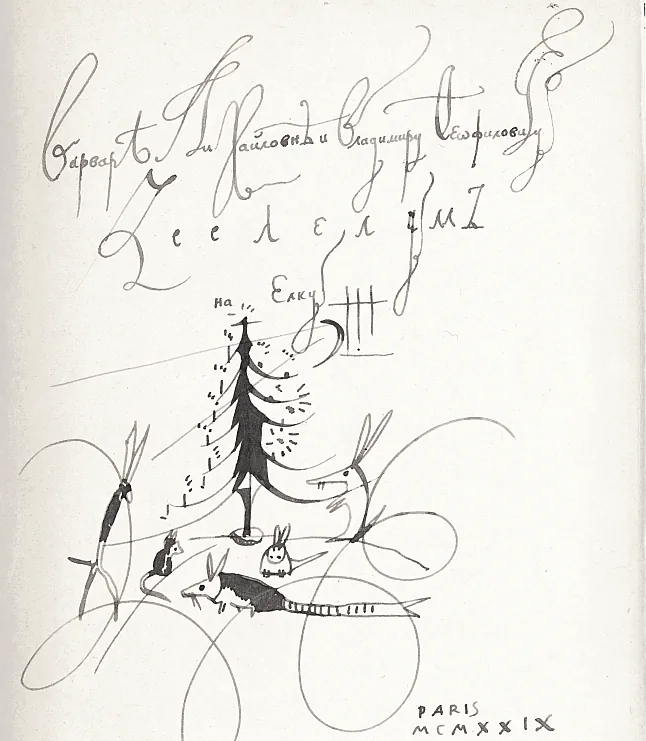 Варварѣ Михайловнѣ и Владимиру Ѳеофиловичу
на Елку!!!
PARIS
MCMXXIX